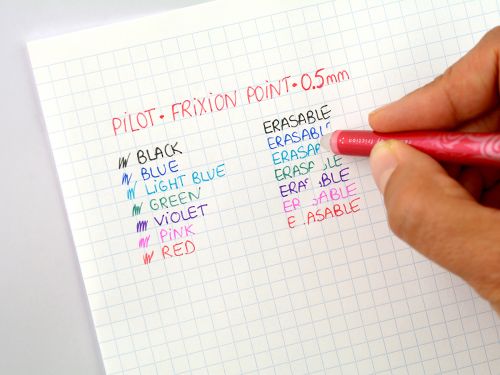 PILOT • FRIXION POINT • 0.5mm
BLACK
BLUE
LIGHT BLUE
GREEN
VIOLET
PINK
RED
ERASABLE
ERASABL
ERASAB
ERASABLE
ERA ABLE
ERASABLE
E ASABLE
frixion